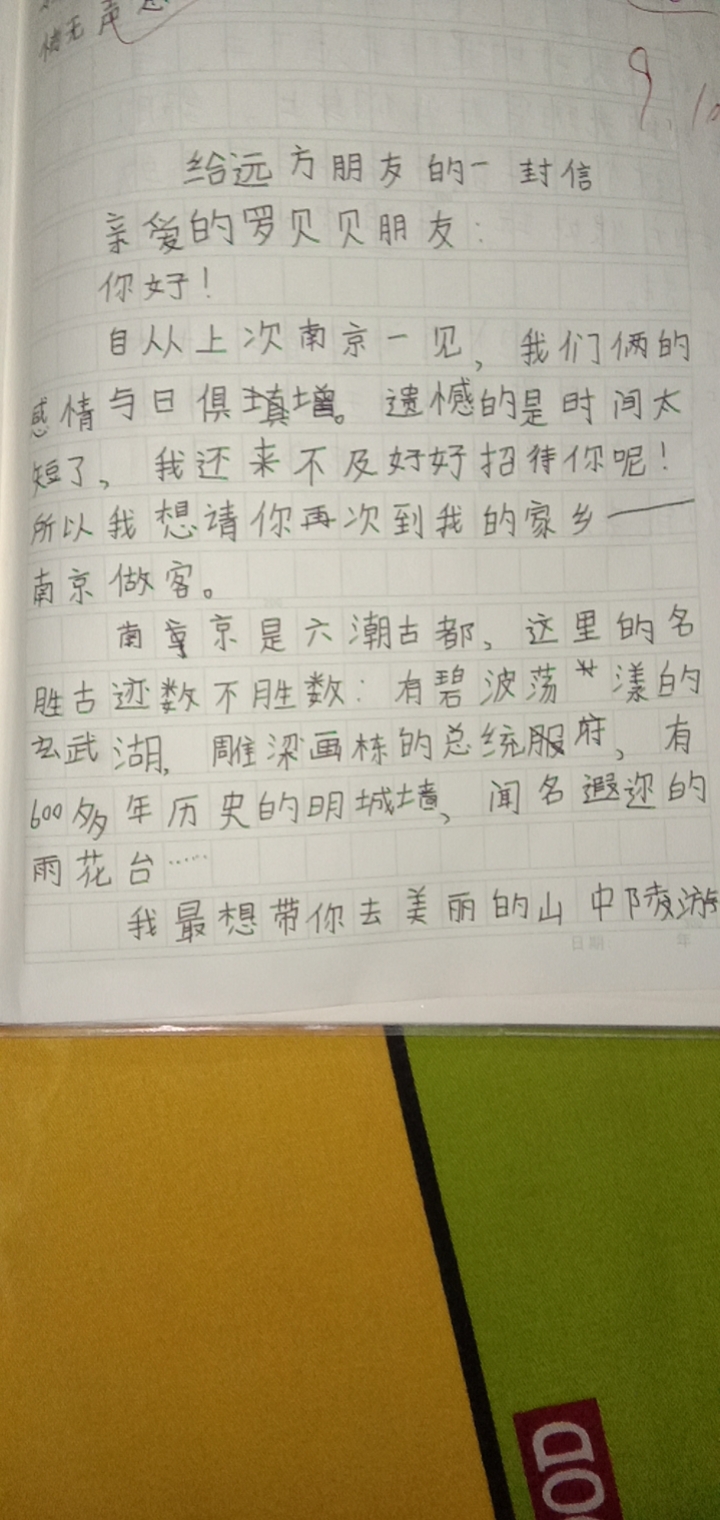 情无声
9.10
给远方朋友的一封信
亲爱的罗贝贝朋友：
你好！
自从上次南京一见，我们俩的
感情与日俱增。遗憾的是时间太
短了，我还来不及好好招待你呢！
所以我想请你再次到我的家乡——
南京做客。
南京是六潮古都，这里的名
胜古迹数不胜数：有碧波荡漾的
玄武湖，雕梁画栋的总统府，有
600多年历史的明城墙，闻名遐迩的
雨花台……
我最想带你去美丽的山中陵游
日期： 年
OD